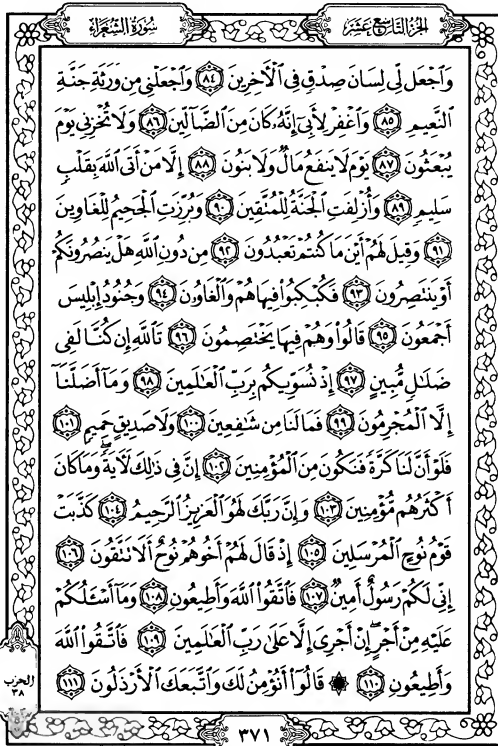 سورة الشعراء
الجزء التاسع عشر
وَٱجْعَل لِّى لِسَانَ صِدْقٍ فِى ٱلْءَاخِرِينَ ٨٤ وَٱجْعَلْنِى مِن وَرَثَةِ جَنَّةِ
ٱلنَّعِيمِ ٨٥ وَٱغْفِرْ لِأَبِىٓ إِنَّهُۥ كَانَ مِنَ ٱلضَّآلِّينَ ٨٦ وَلَا تُخْزِنِى يَوْمَ
يُبْعَثُونَ ٨٧ يَوْمَ لَا يَنفَعُ مَالٌ وَلَا بَنُونَ ٨٨ إِلَّا مَنْ أَتَى ٱللَّهَ بِقَلْبٍ
سَلِيمٍ ٨٩ وَأُزْلِفَتِ ٱلْجَنَّةُ لِلْمُتَّقِينَ ٩٠ وَبُرِّزَتِ ٱلْجَحِيمُ لِلْغَاوِينَ
٩١ وَقِيلَ لَهُمْ أَيْنَ مَا كُنتُمْ تَعْبُدُونَ ٩٢ مِن دُونِ ٱللَّهِ هَلْ يَنصُرُونَكُمْ
أَوْ يَنتَصِرُونَ ٩٣ فَكُبْكِبُوا۟ فِيهَا هُمْ وَٱلْغَاوُۥنَ ٩٤ وَجُنُودُ إِبْلِيسَ
أَجْمَعُونَ ٩٥ قَالُوا۟ وَهُمْ فِيهَا يَخْتَصِمُونَ ٩٦ تَٱللَّهِ إِن كُنَّا لَفِى
ضَلَٰلٍ مُّبِينٍ ٩٧ إِذْ نُسَوِّيكُم بِرَبِّ ٱلْعَٰلَمِينَ ٩٨ وَمَآ أَضَلَّنَآ
إِلَّا ٱلْمُجْرِمُونَ ٩٩ فَمَا لَنَا مِن شَٰفِعِينَ ١٠٠ وَلَا صَدِيقٍ حَمِيمٍ ١٠١
فَلَوْ أَنَّ لَنَا كَرَّةً فَنَكُونَ مِنَ ٱلْمُؤْمِنِينَ ١٠٢ إِنَّ فِى ذَٰلِكَ لَءَايَةً ۖ وَمَا كَانَ
أَكْثَرُهُم مُّؤْمِنِينَ ١٠٣ وَإِنَّ رَبَّكَ لَهُوَ ٱلْعَزِيزُ ٱلرَّحِيمُ ١٠٤ كَذَّبَتْ
قَوْمُ نُوحٍ ٱلْمُرْسَلِينَ ١٠٥ إِذْ قَالَ لَهُمْ أَخُوهُمْ نُوحٌ أَلَا تَتَّقُونَ ١٠٦
إِنِّى لَكُمْ رَسُولٌ أَمِينٌ ١٠٧ فَٱتَّقُوا۟ ٱللَّهَ وَأَطِيعُونِ ١٠٨ وَمَآ أَسْـَٔلُكُمْ
عَلَيْهِ مِنْ أَجْرٍ ۖ إِنْ أَجْرِىَ إِلَّا عَلَىٰ رَبِّ ٱلْعَٰلَمِينَ ١٠٩ فَٱتَّقُوا۟ ٱللَّهَ
وَأَطِيعُونِ ١١٠ ۞ قَالُوٓا۟ أَنُؤْمِنُ لَكَ وَٱتَّبَعَكَ ٱلْأَرْذَلُونَ ١١١
الحزب
٣٨
٣٧١